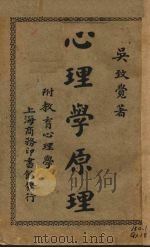 吳致覺著
心理學原理
附教育心理學
上海商務印書館發行